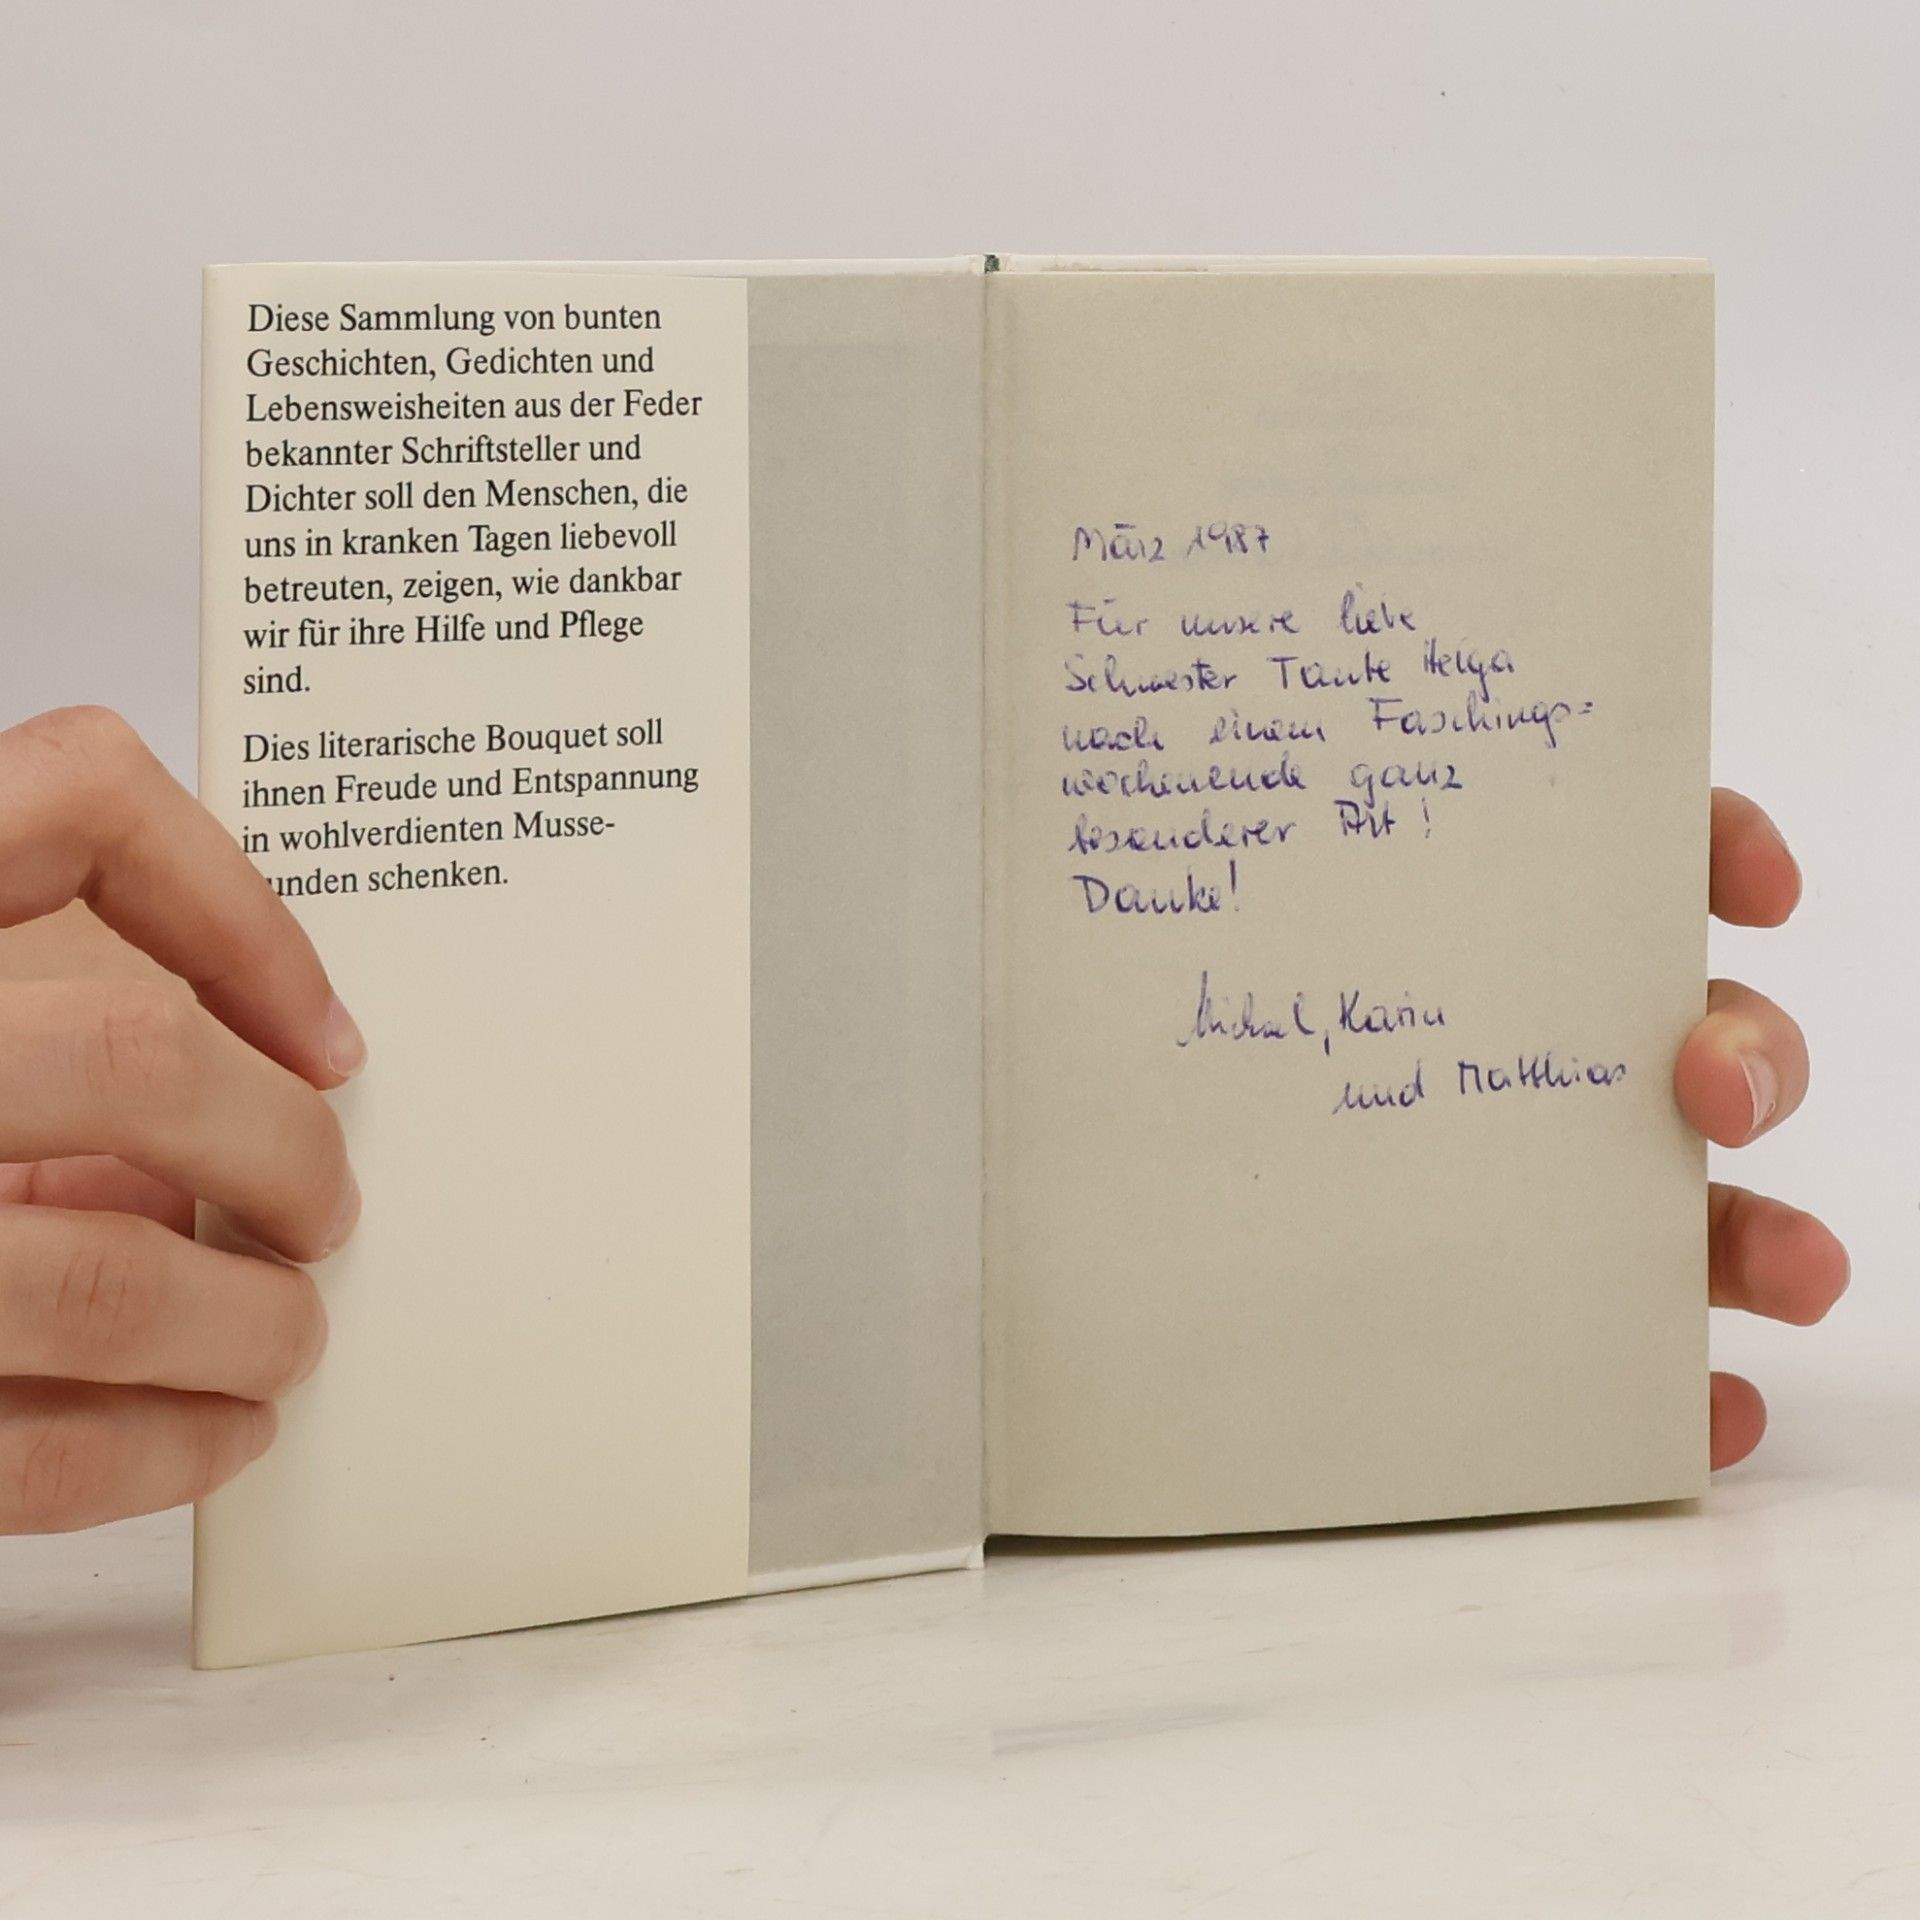 Diese Sammlung von bunten
Geschichten, Gedichten und
Lebensweisheiten aus der Feder
bekannter Schriftsteller und
Dichter soll den Menschen, die
uns in kranken Tagen liebevoll
betreuten, zeigen, wie dankbar
wir für ihre Hilfe und Pflege
sind.
Dies literarische Bouquet soll
ihnen Freude und Entspannung
in wohlverdienten Musse-
unden schenken.
März 1987
Für unsere liebe
Schwester Tante Helga
nach einem Faschings=
wochenende ganz
besonderer Art!
Danke!
Michael, Karin
und Matthias